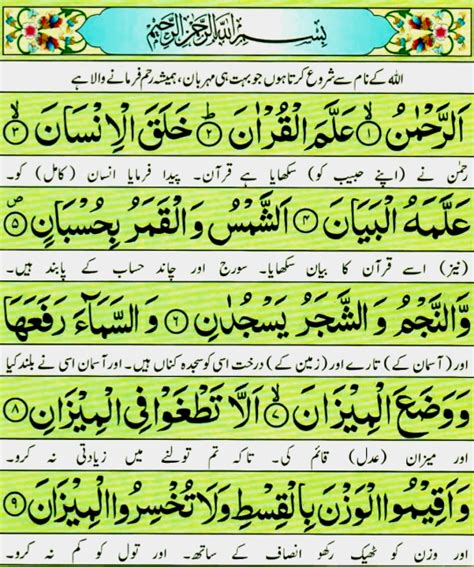 بِسْمِ اللهِ الرَّحْمٰنِ الرَّحِيْمِ
اللہ کے نام سے شروع کرتا ہوں جو بہت ہی مہربان، ہمیشہ رحم فرمانے والا ہے
اَلرَّحْمٰنُ ۙ۱ عَلَّمَ الْقُرْاٰنَ ؕ۲ خَلَقَ الْاِنْسَانَ ۙ۳
رحمٰن نے (اپنے حبیب کو) سکھایا ہے قرآن۔ پیدا فرمایا انسان (کامل) کو۔
عَلَّمَهُ الْبَيَانَ ۴ اَلشَّمْسُ وَ الْقَمَرُ بِحُسْبَانٍ ۪۵
(نیز) اسے قرآن کا بیان سکھایا۔ سورج اور چاند حساب کے پابند ہیں۔
وَّ النَّجْمُ وَ الشَّجَرُ يَسْجُدٰنِ ۶ وَ السَّمَآءَ رَفَعَهَا
اور (آسمان کے) تارے اور (زمین کے) درخت اسی کو سجدہ کناں ہیں۔ اور آسمان اسی نے بلند کیا
وَ وَضَعَ الْمِيْزَانَ ۙ۷ اَلَّا تَطْغَوْا فِی الْمِيْزَانِ ۸
اور میزان (عدل) قائم کی۔ تاکہ تم تولنے میں زیادتی نہ کرو۔
وَ اَقِيْمُوا الْوَزْنَ بِالْقِسْطِ وَ لَا تُخْسِرُوا الْمِيْزَانَ ۹
اور وزن کو ٹھیک رکھو انصاف کے ساتھ۔ اور تول کو کم نہ کرو۔